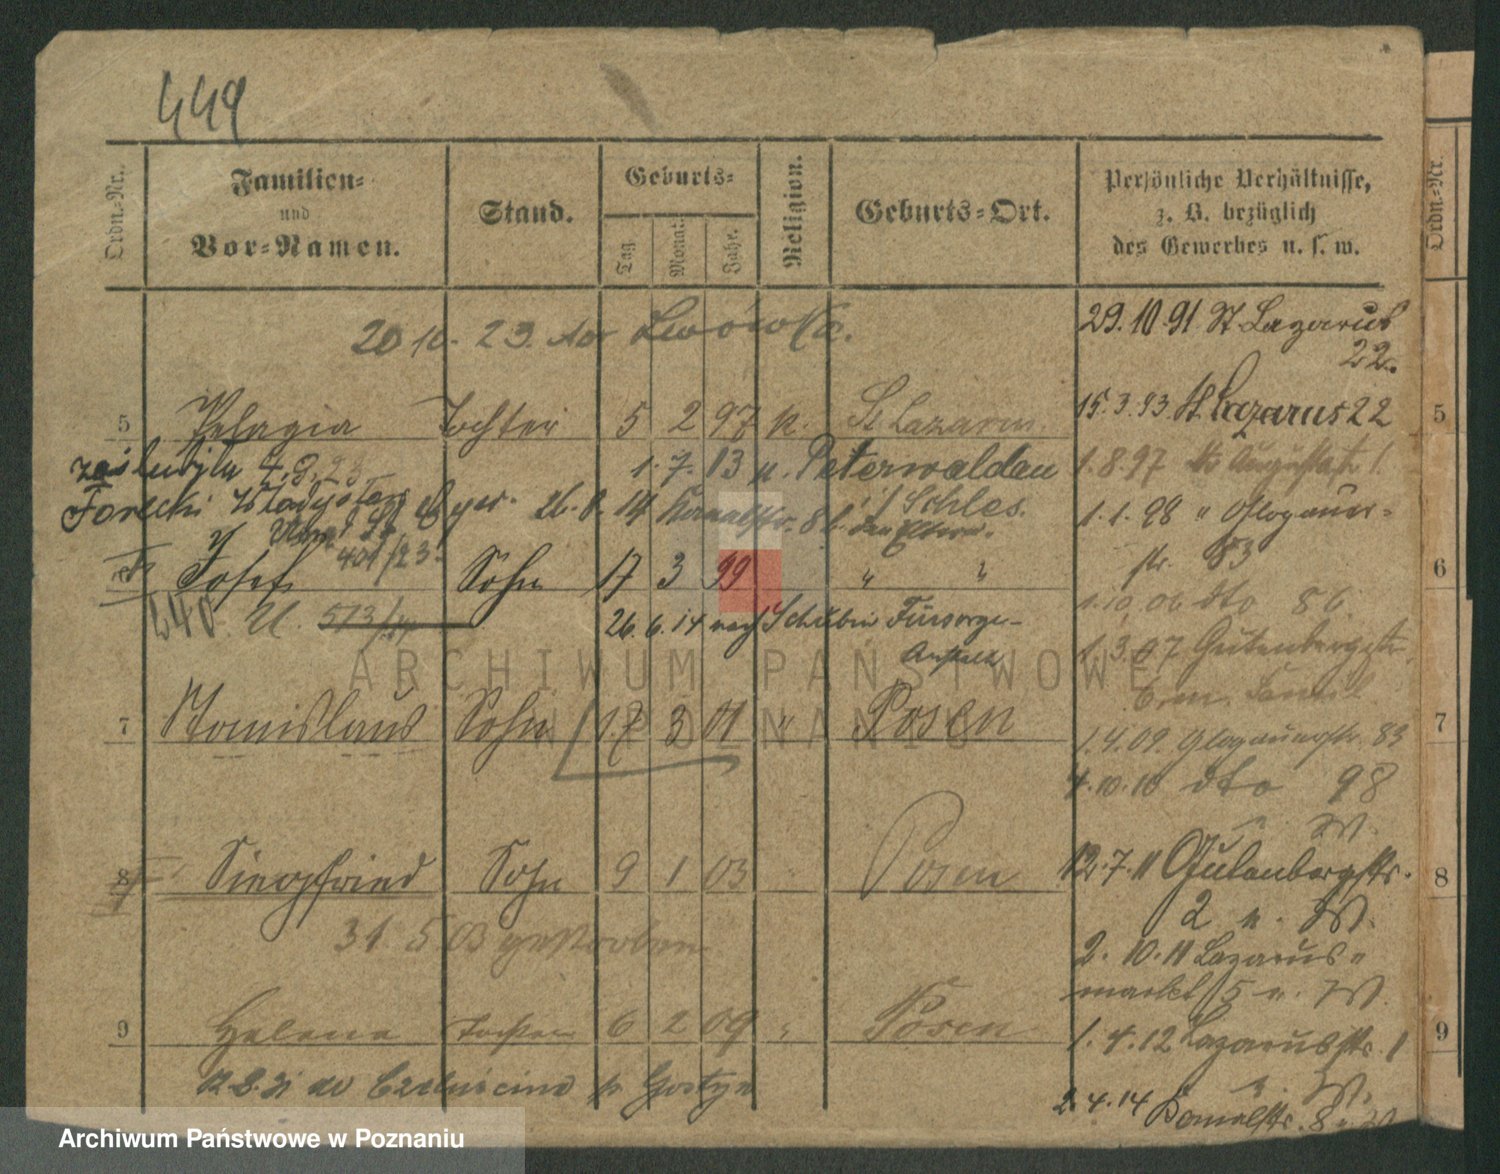 449
Ordn.-Nr.
Familien-
und
Vor-Namen.
Stand.
Geburts-
Tag.
Monat.
Jahr.
Religion.
Geburts-Ort.
Persönliche Verhältnisse,
z. B. bezüglich
des Gewerbes u. s. w.
Ordn.-Nr.
29.10.91 St. Lazarus
22.
20 10. 23. Lwówska.
15.3.93 St. Lazarus 22
5 Pelagia Tochter 5 2 97 k. St Lazarus 5
zaślubiła 4.9.23 1. 7. 13 n. Peterwaldau 1.8.97 Augustastr. 1.
Forecki Władysław 26.8.14 Kanalstr. 8 b. den Eltern. i/ Schles. 1.1.98 " Glogauer-
str. 83
401/23.
6 Josef Sohn 17 3 99 " " 6
1.10.06 dto 86.
U. 513/14 26.6.14 nach Schubin Fürsorge-
Anstalt
1.3.07 Gutenbergstr.
7 Stanislaus Sohn 17 3 01 " Posen 7
1.4.09. Glogauerstr. 83
4.10.10 dto 98
8 Siegfried Sohn 9 1 03 " Posen 8
12.7.11 Gutenbergstr.
2 n. W.
31. 5 03 gestorben
2. 10.11 Lazarus-
markt 5 n. W.
9 Helena Tochter 6 2 09 " Posen 9
1.4.12 Lazarusstr. 1
n. W.
2.4.14 Kanalstr. 8 n. W
ARCHIWUM PAŃSTWOWE
W POZNANIU
Archiwum Państwowe w Poznaniu